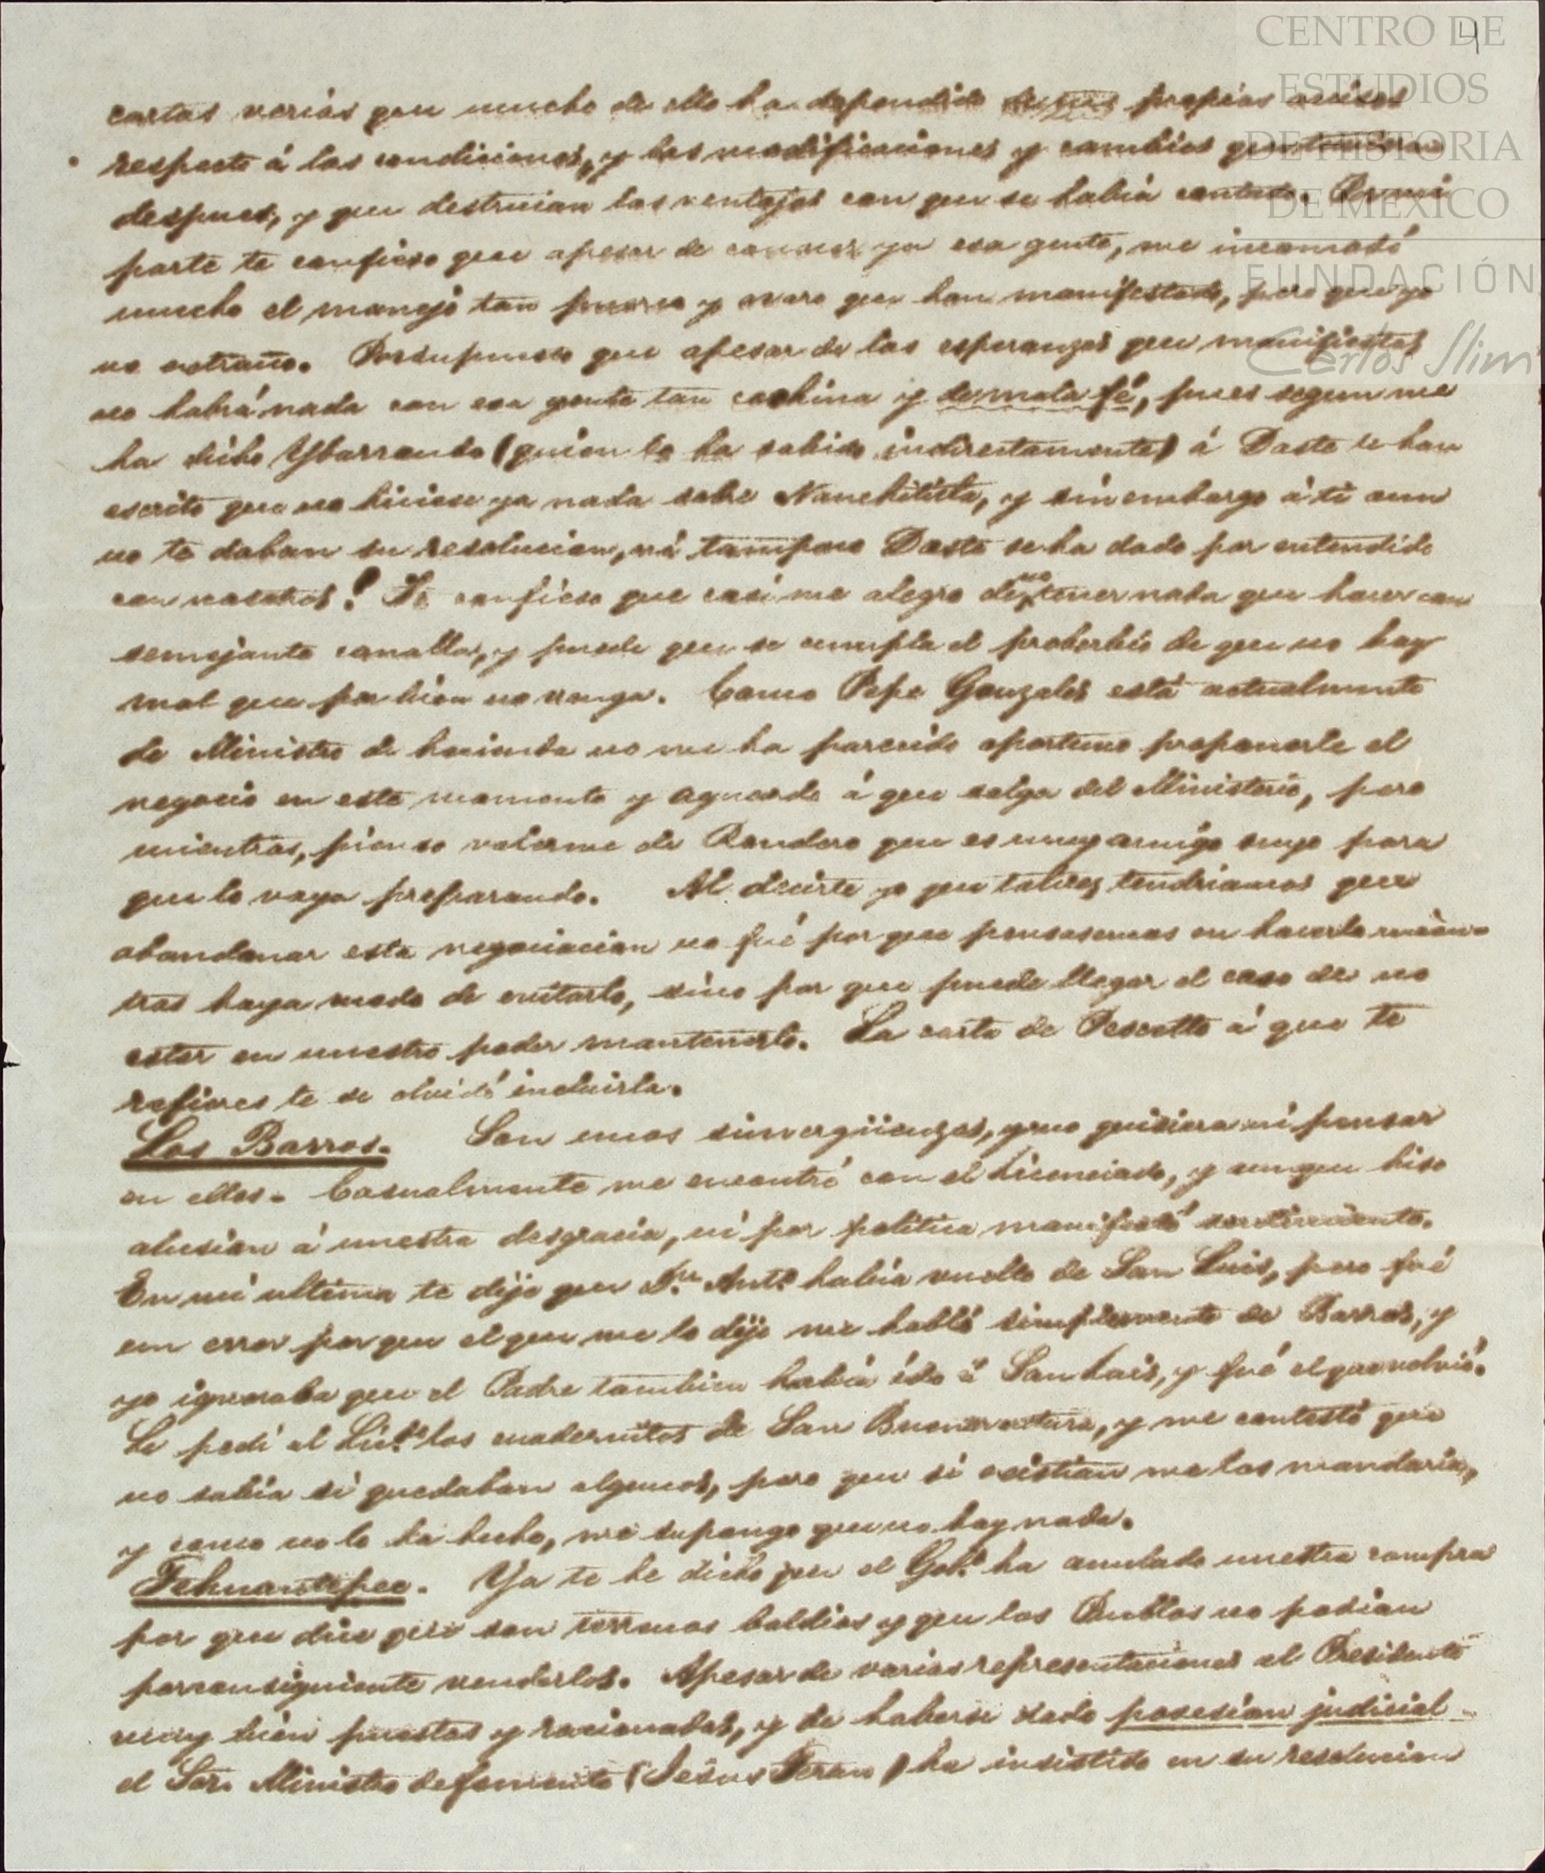 4
CENTRO DE
ESTUDIOS
DE HISTORIA
DE MÉXICO
FUNDACIÓN
Carlos Slim
cartas verías que mucho de ello ha dependido propias
respecto á las condiciones, y las modificaciones y cambios que
despues, y que destruian las ventajas con que se habia contado. Por mi
parte te confieso que apesar de conocer ya esa gente, me incomodó
mucho el manejo tan puerco y raro que han manifestado, pero que yo
no extraño. Por supuesto que apesar de las esperanzas que manifiestas
no habrá nada con esa gente tan cochina y de mala fé, pues segun me
ha dicho Ybarrondo (quien lo ha sabido indirectamente) á Daste le han
escrito que no hiciese ya nada sobre Nanchititla, y sin embargo á ti aun
no te daban su resolucion, ni tampoco Daste se ha dado por entendido
con nosotros! Te confieso que casi me alegro de no tener nada que hacer con
semejante canalla, y puede que se cumpla el proberbio de que no hay
mal que por bien no venga. Como Pepe Gonzales está actualmente
de Ministro de hacienda no me ha parecido oportuno proponerle el
negocio en este momento y aguardo á que salga del Ministerio, pero
mientras, pienso valerme de Rondero que es muy amigo suyo para
que lo vaya preparando. Al decirte yo que talvez tendriamos que
abandonar esta negociacion no fué por que pensasemos en hacerlo mien-
tras haya modo de evitarlo, sino por que puede llegar el caso de no
estar en nuestro poder mantenerlo. La carta de Pescetto á que te
refieres te se olvidó incluirla.
Los Barros. Son unos sinvergüenzas, y no quisiera ni pensar
en ellos. Casualmente me encontré con el Licenciado, y aunque hiso
alusion á nuestra desgracia, ni por politica manifestó sentimiento.
En mi ultima te dije que Dn. Anto. habia vuelto de San Luis, pero fué
un error porque el que me lo dijo me habló simplemente de Barros, y
yo ignoraba que el Padre tambien habia ido á San Luis, y fué el que volvió.
Le pedí al Licdo. los cuadernitos de San Buenaventura, y me contestó que
no sabia si quedaban algunos, pero que si existian me los mandaria,
y como no lo ha hecho, me supongo que no hay nada.
Tehuantepec. Ya te he dicho que el Gobo. ha anulado nuestra compra
por que dice que son terrenos baldios y que los Pueblos no podian
porconsiguiente venderlos. Apesar de varias representaciones al Presidente
muy bien puestas y razonadas, y de haberse dado posesion judicial
el Sor. Ministro de fomento (Jesus Teran) ha insistido en su resolucion